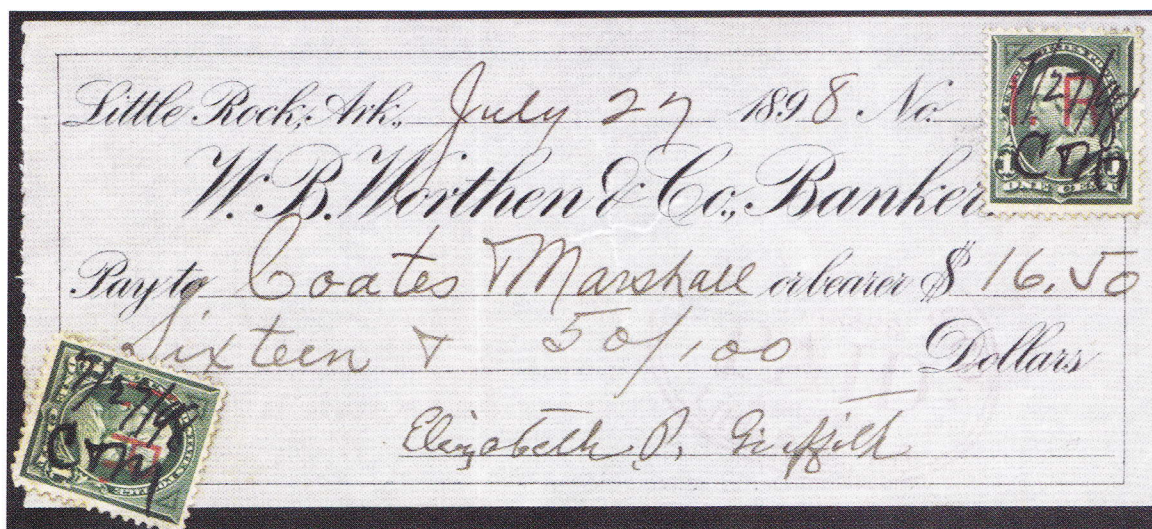 Little Rock, Ark., July 27 1898 No.
W. B. Worthen & Co., Banker
Pay to Coates & Marshall or bearer $ 16.50
Sixteen & 50/100 Dollars
Elizabeth P. Griffith
I. R.
7/27/98
C & M
ONE CENT
7/27/98
I. R.
C & M